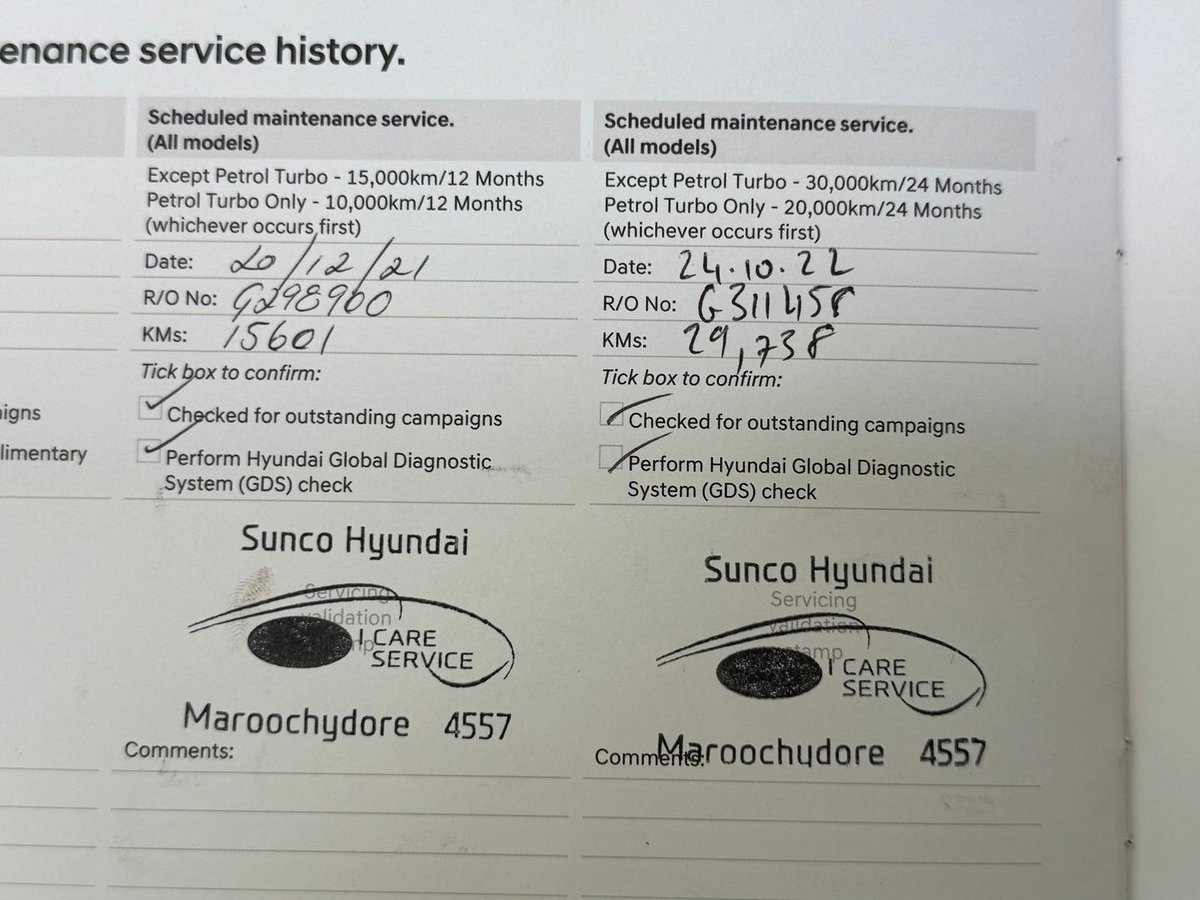 enance service history.
Scheduled maintenance service.
(All models)
Except Petrol Turbo - 15,000km/12 Months
Petrol Turbo Only - 10,000km/12 Months
(whichever occurs first)
Date: 20/12/21
R/O No: G298900
KMs: 15601
Tick box to confirm:
Checked for outstanding campaigns
Perform Hyundai Global Diagnostic
System (GDS) check
Sunco Hyundai
Servicing
validation
I CARE
SERVICE
Maroochydore 4557
Comments:
Scheduled maintenance service.
(All models)
Except Petrol Turbo - 30,000km/24 Months
Petrol Turbo Only - 20,000km/24 Months
(whichever occurs first)
Date: 24.10.22
R/O No: G311458
KMs: 29,738
Tick box to confirm:
Checked for outstanding campaigns
Perform Hyundai Global Diagnostic
System (GDS) check
Sunco Hyundai
Servicing
validation
stamp
I CARE
SERVICE
Maroochydore 4557
Comments:
aigns
limentary